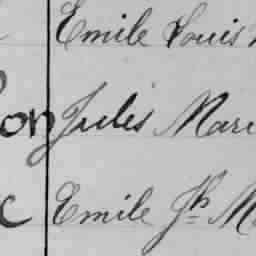 Emile Louis
on Jules Mari
c Emile Jh M